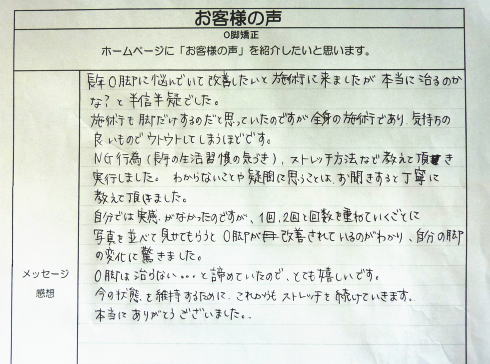 お客様の声
O脚矯正
ホームページに「お客様の声」を紹介したいと思います。
長年O脚に悩んでいて改善したいと施術に来ましたが本当に治るのか
な?と半信半疑でした。
施術も脚だけするのだと思っていたのですが全身の施術であり、気持ちの
良いものでウトウトしてしまうほどです。
NG行為(長年の生活習慣の気づき)、ストレッチ方法など教えて頂き
実行しました。わからないことや疑問に思うことは、お聞きすると丁寧に
教えて頂けました。
自分では実感がなかったのですが、1回、2回と回数を重ねていくごとに
写真を並べて見せてもらうとO脚が改善されているのがわかり、自分の脚
の変化に驚きました。
メッセージ
感想
O脚は治らない...と諦めていたので、とても嬉しいです。
今の状態を維持するために、これからもストレッチを続けていきます。
本当にありがとうございました。